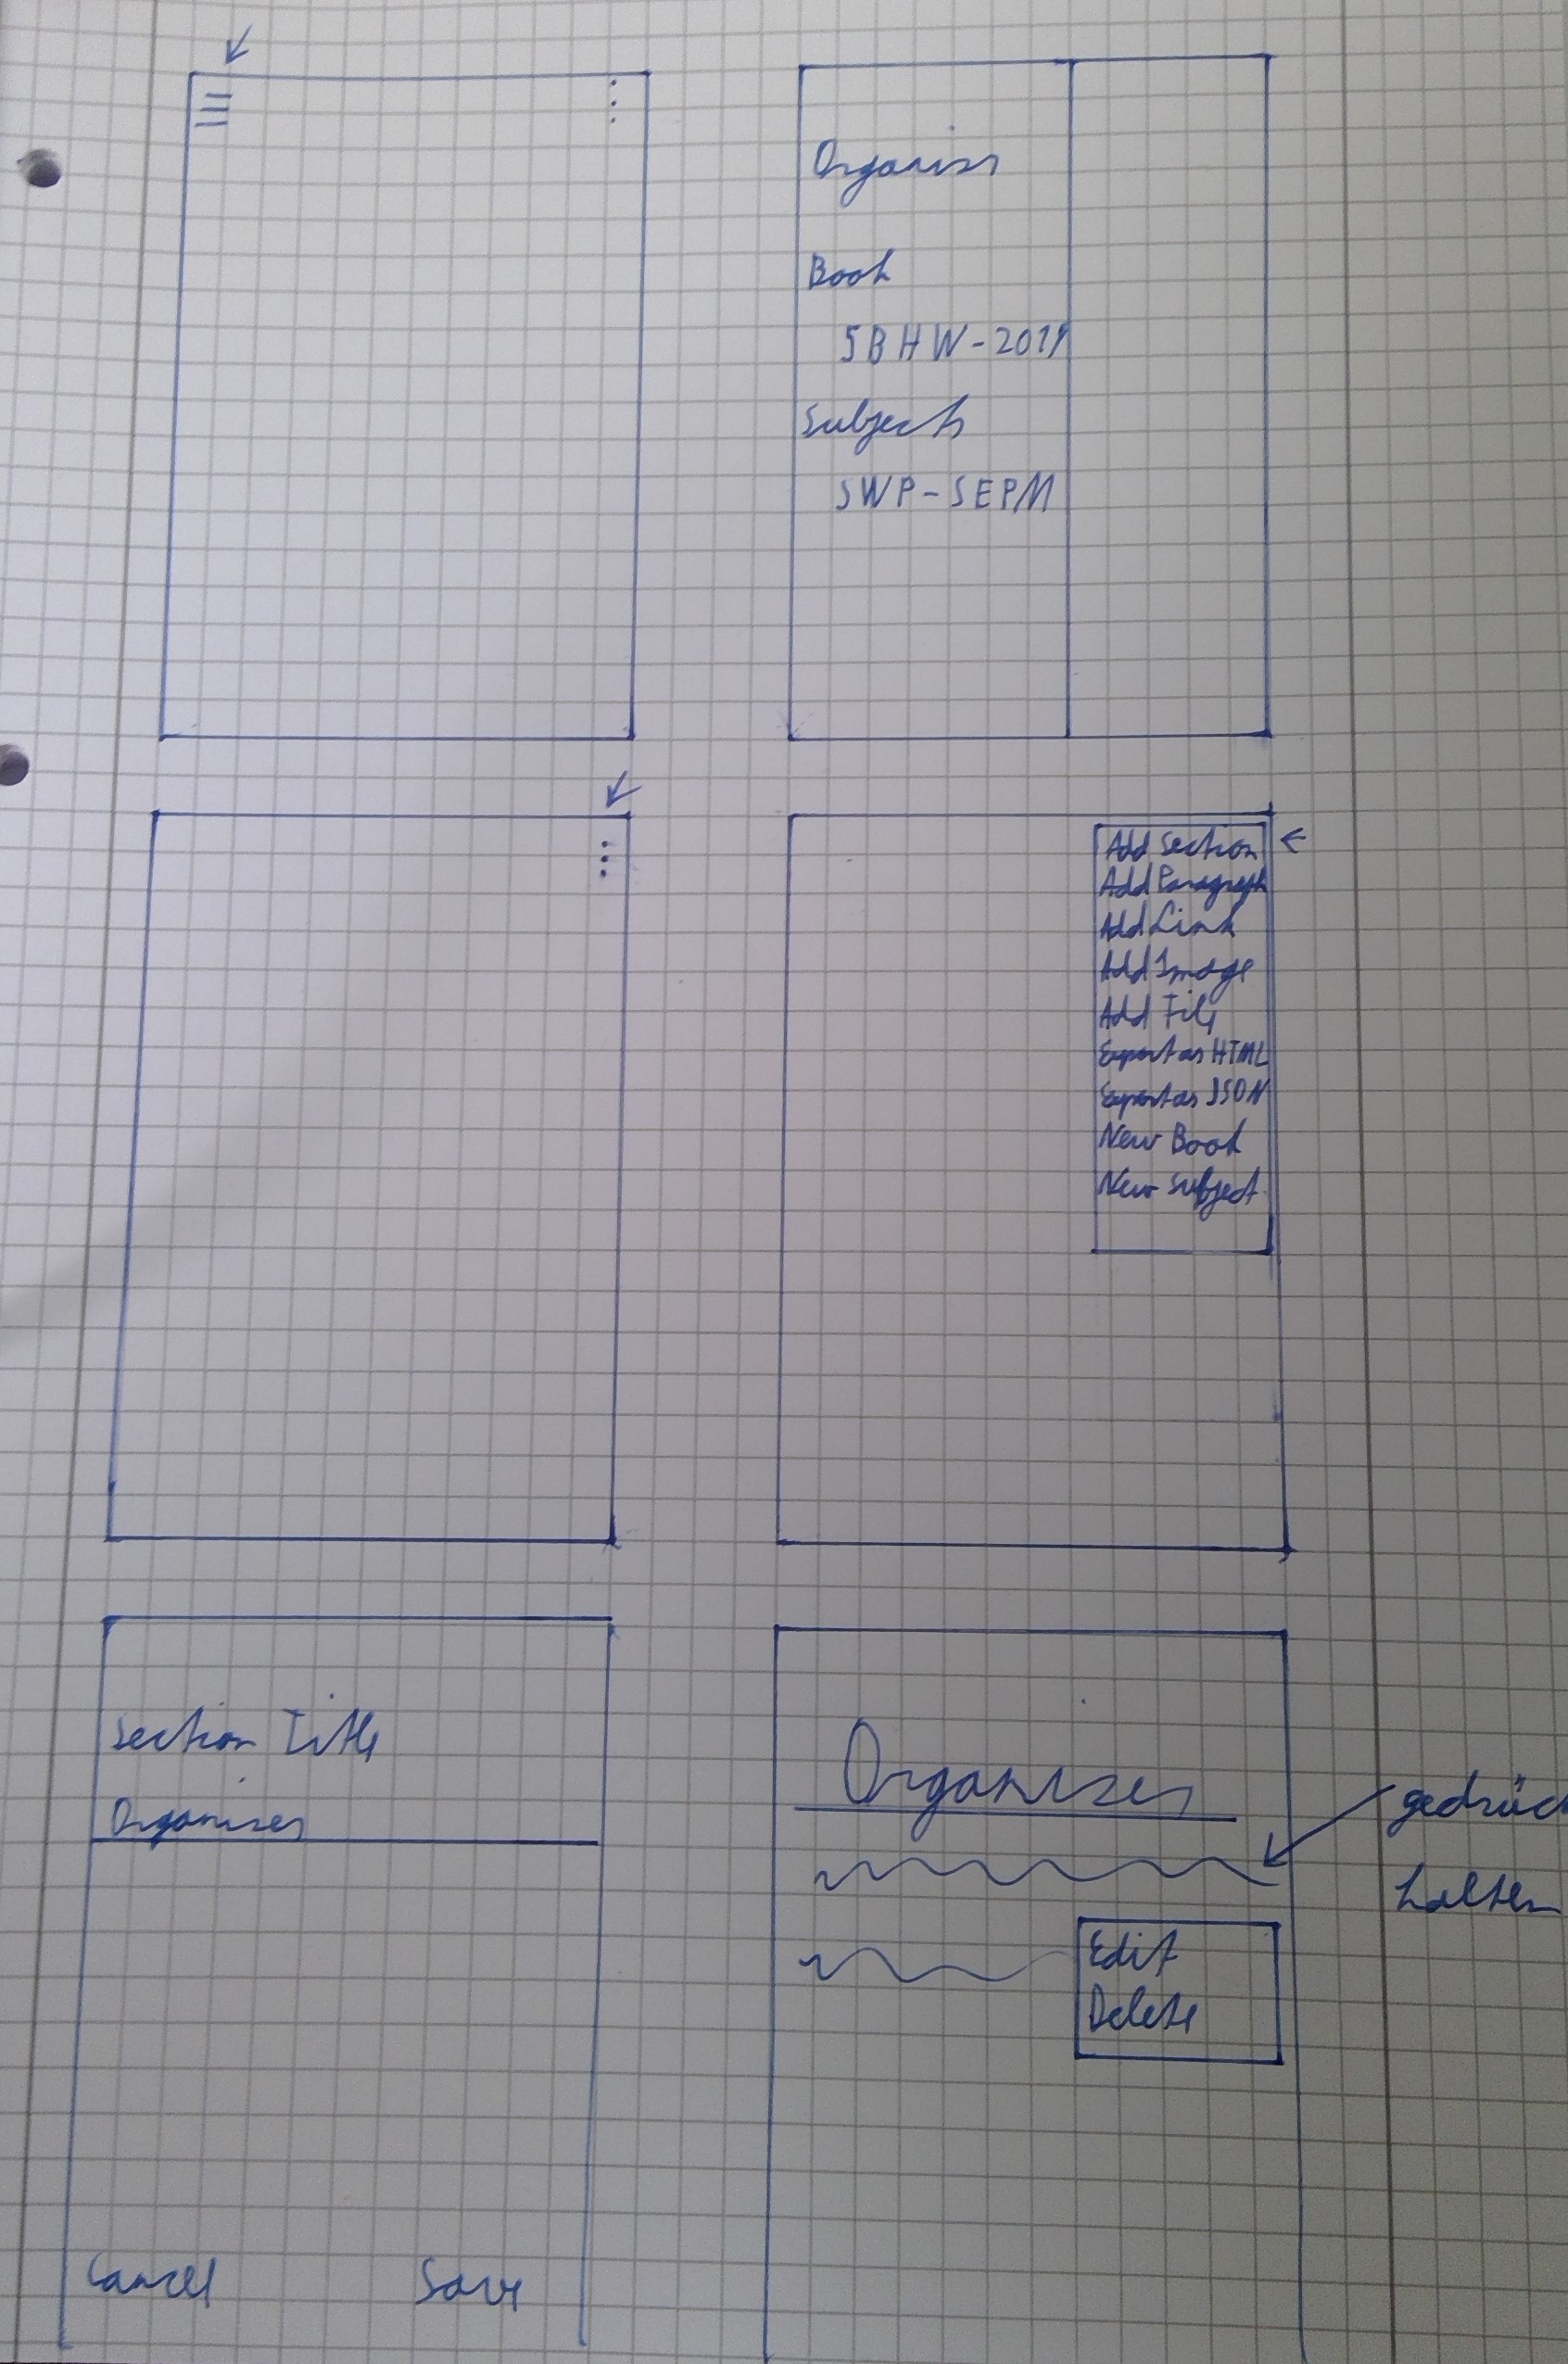 Organiser
Book
5BHW-2019
Subjects
SWP-SEPM
Add Section
Add Paragraph
Add Link
Add Image
Add File
Export as HTML
Export as JSON
New Book
New Subject
Section Title
Organiser
Cancel Save
Organiser
gedrück
halten
Edit
Delete